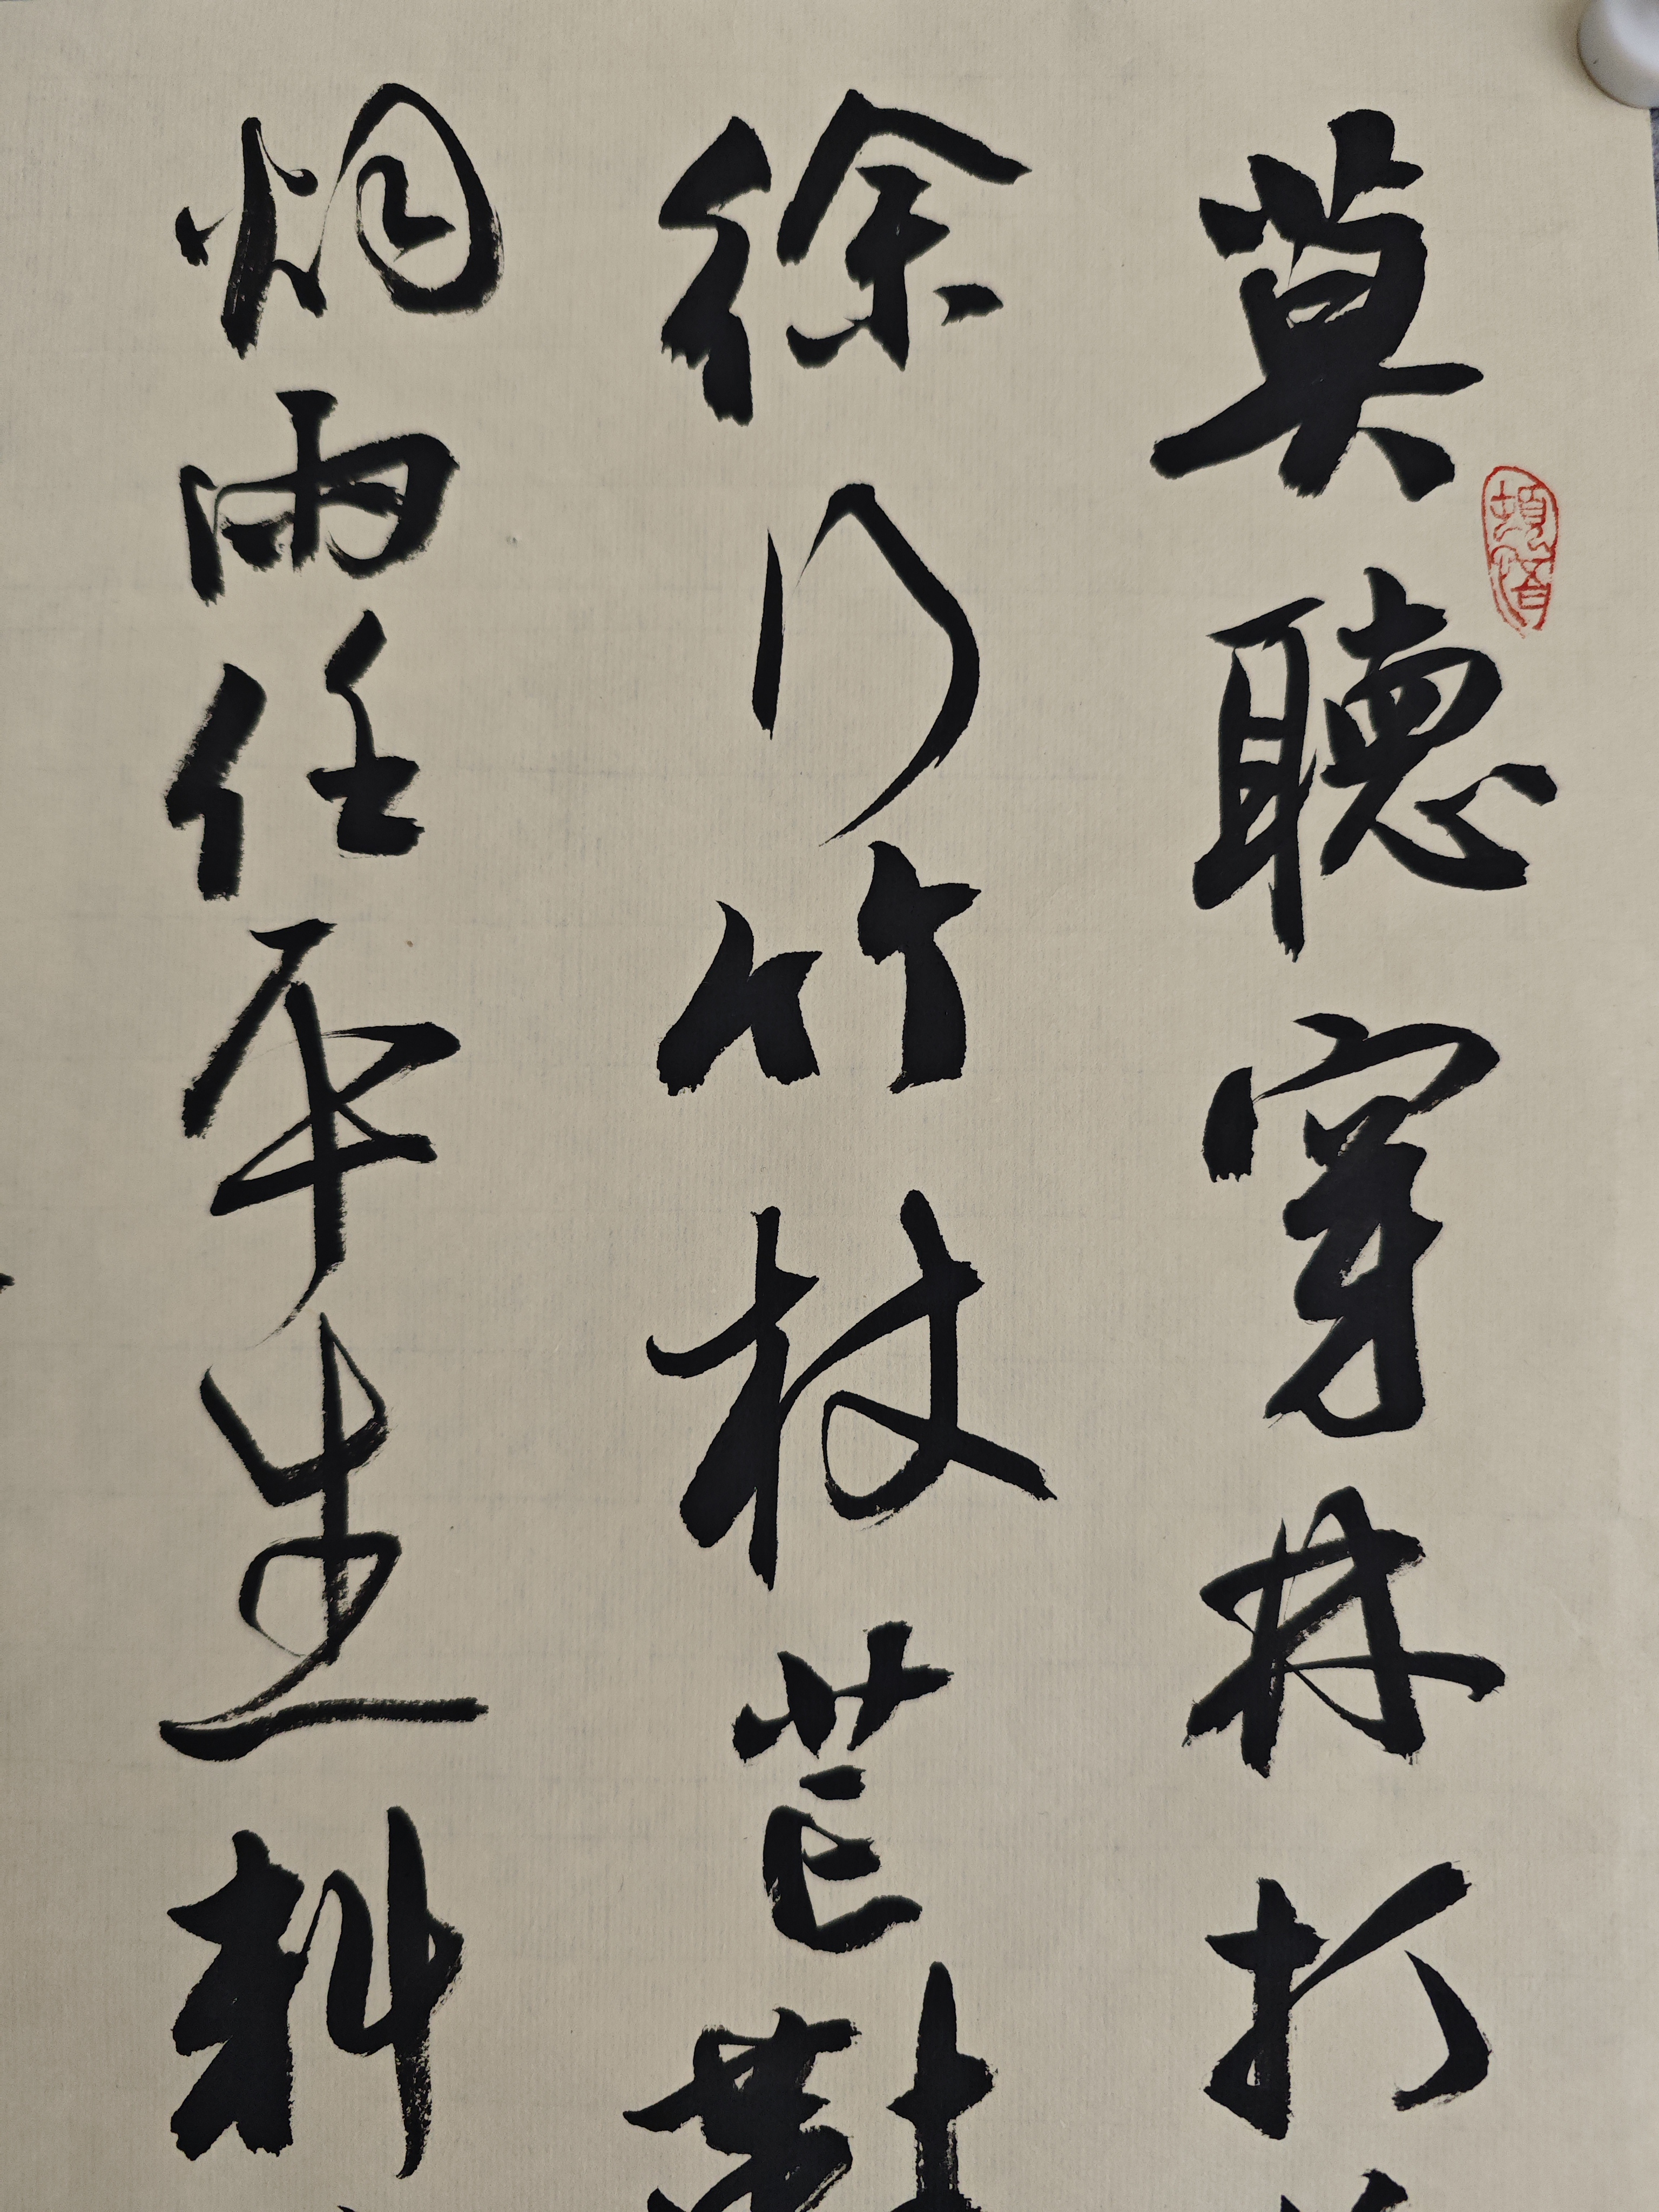 莫聽穿林打
徐行竹杖芒鞋
烟雨任平生料